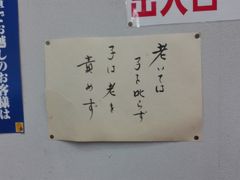 出入口
でお越しのお客様は
老いては
子を叱らず
子は老を
責めず